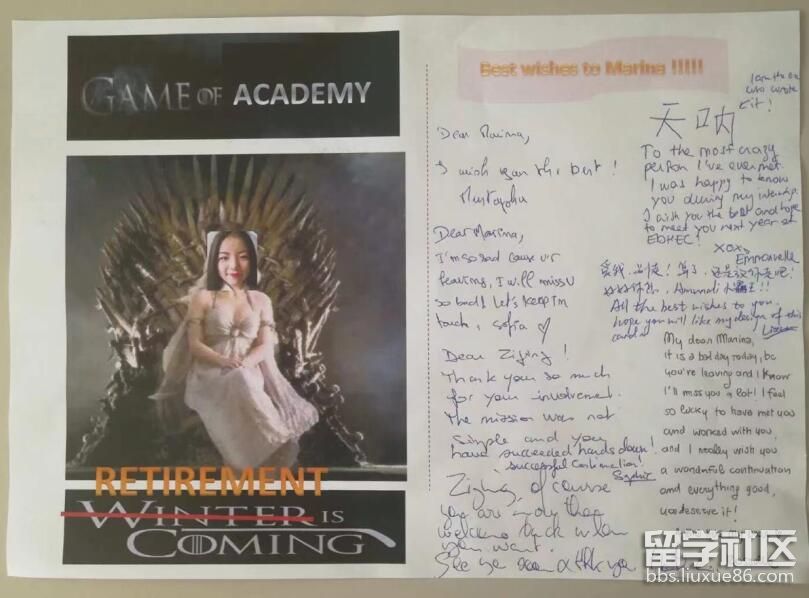 GAME OF ACADEMY
RETIREMENT
WINTER IS
COMING
Best wishes to Marina !!!!!
I am the one
who wrote
it!
天呐
Dear Marina,
I wish you the best !
To the most crazy
person I've ever met.
I was happy to know
you during my internship.
I wish you the best and hope
to meet you next year at
EDHEC!
xoxo,
Emmanuelle
Dear Marina,
I'm so sad cause u're
leaving, I will miss u
so bad! Let's keep in
touch, Sofia ♡
还是
Amundi 小霸王!!
All the best wishes to you.
hope you will like my design of this
card
Dear Zijing !
Thank you so much
for your involvement.
The mission was not
simple and you
have succeeded hands down!
successful continuation!
My dear Marina,
It is a bad day today, bc
you're leaving and I know
I'll miss you a lot! I feel
so lucky to have met you
and worked with you,
and I really wish you
a wonderful continuation
and everything good,
you deserve it!
Zijing, of course
you are more than
welcome back when
you want.
See you soon
留学社区
bbs.liuxue86.com